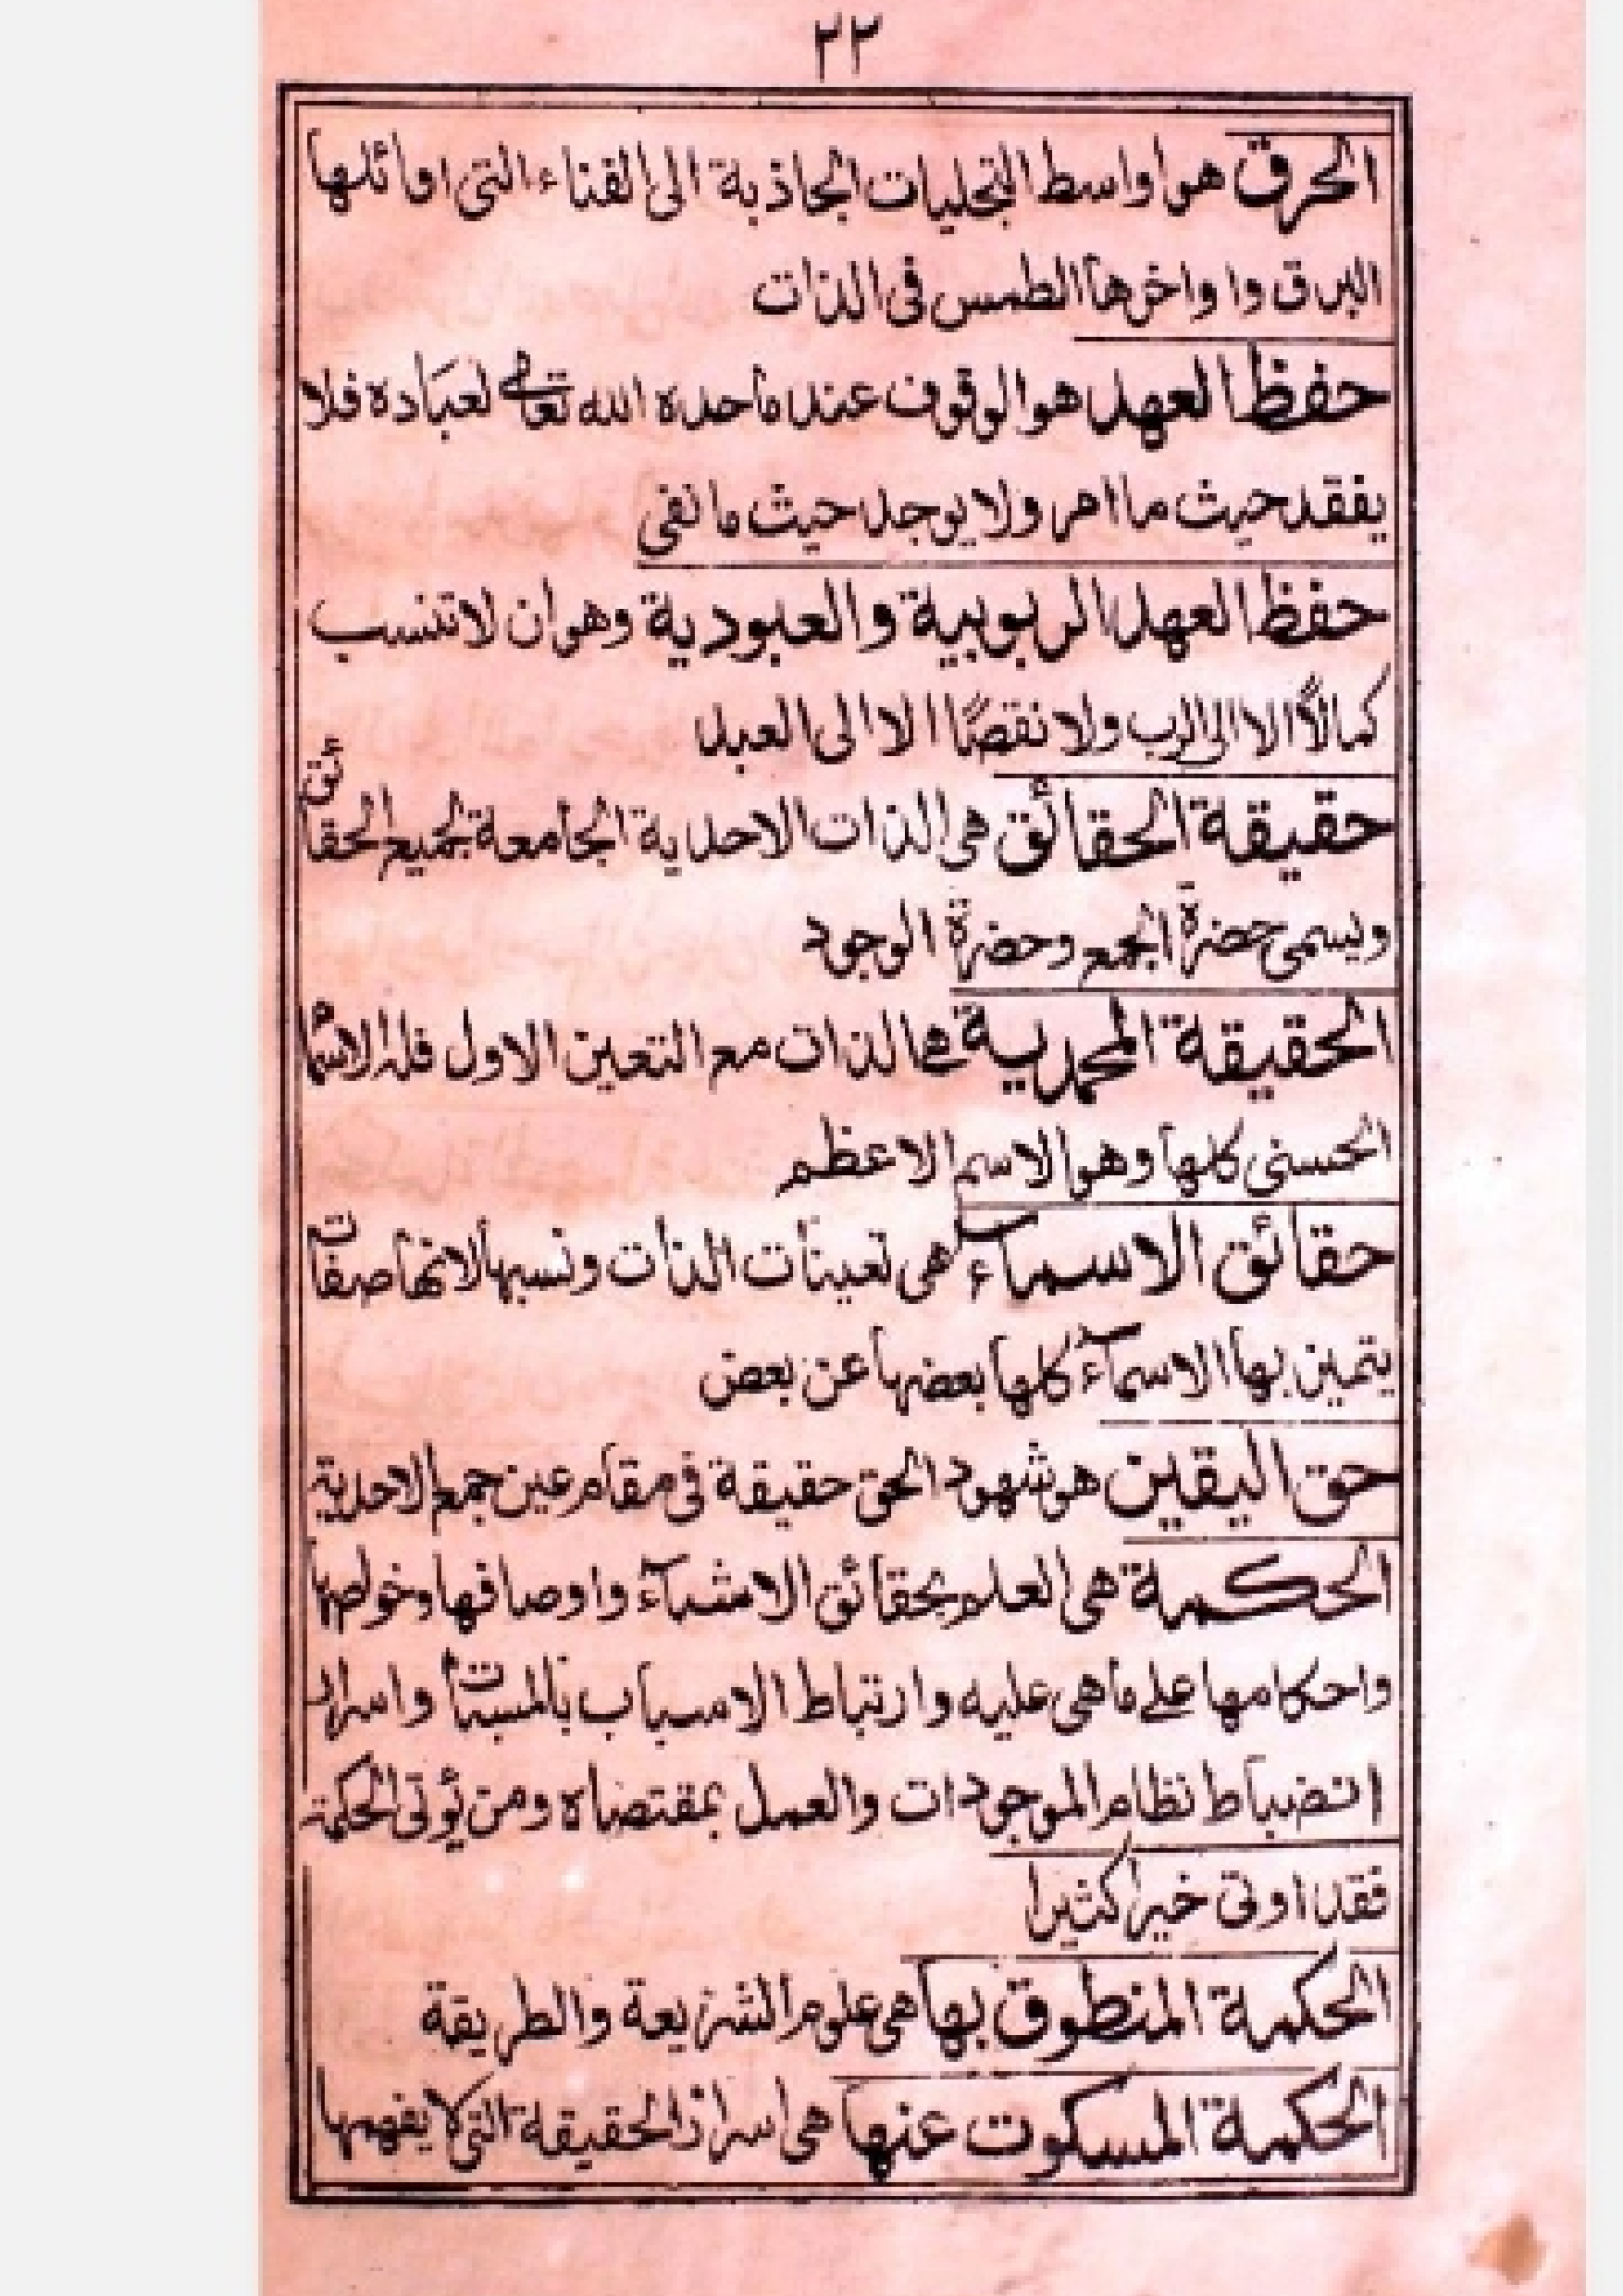 ٢٢
الحرق هو اواسط التجليات الجاذبة الى الفناء التى اوائلها
البرق وا واخرها الطمس فى الذات
حفظ العهد هو الوقوف عند ما حده الله تعالى لعباده فلا
يفقد حيث ما امر ولا يوجد حيث ما نهى
حفظ العهد الربوبية والعبودية وهو ان لا تنسب
كمالاً الا الى الرب ولا نقصًا الا الى العبد
حقيقة الحقائق هى الذات الاحدية الجامعة لجميع الحقائق
ويسمى حضرة الجمع وحضرة الوجود
الحقيقة المحمدية هى الذات مع التعين الاول فله الاسماء
الحسنى كلها وهو الاسم الاعظم
حقائق الاسمآء هى تعينات الذات ونسبها لانها صفات
يتميز بها الاسمآء كلها بعضها عن بعض
حق اليقين هو شهود الحق حقيقة فى مقام عين جمع الاحدية
الحكمة هى العلم بحقائق الاشيآء واوصافها وخواصها
واحكامها على ما هى عليه وارتباط الاسباب بالمسببات واسرار
انضباط نظام الموجودات والعمل بمقتضاه ومن يؤتى الحكمة
فقد اوتى خيرا كثيرا
الحكمة المنطوق بها هى علوم الشريعة والطريقة
الحكمة المسكوت عنها هى اسرار الحقيقة التى لا يفهمها